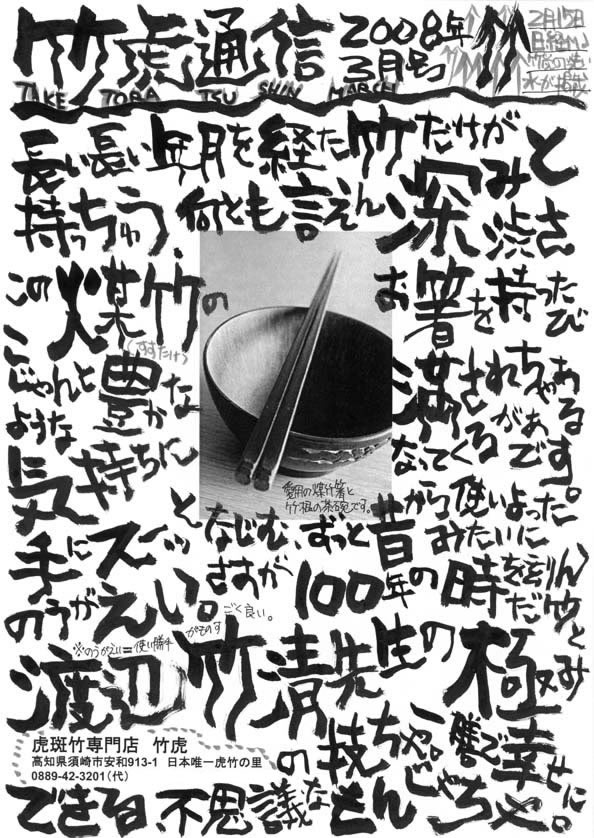 竹虎通信 2008年
3月号 竹
TAKE TORA TSU SHIN MARCH
2月15日
日経MJ
竹炭の洗い
水が掲載
長い長い年月を経た竹だけが
持っちゅう、何とも言えん深みと渋さ
この煤竹のお箸を持ったび
(すすたけ)
こじゃんと豊かな
満
ような気持ちになってくるがぁです。
愛用の煤竹箸と
竹根の茶碗です。
手にスーッとなじむ ずっと昔から使いよったみたいに
のうがえい。さすが100年の時を刻んだ竹
※のうがえい=使い勝手がものすごく良い。
渡辺竹清先生の極み
の技ちや。一膳で幸せに
できる不思議なもんじゃちや。
虎斑竹専門店 竹虎
高知県須崎市安和913-1 日本唯一虎竹の里
0889-42-3201(代)